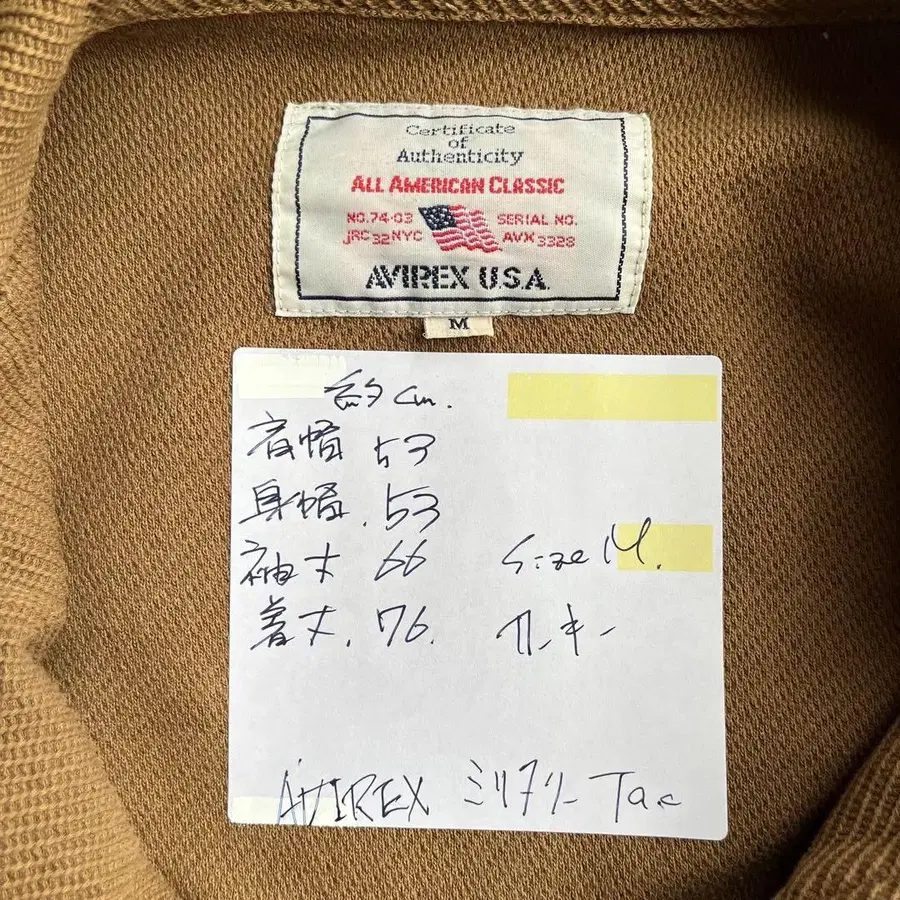 Certificate
of
Authenticity
ALL AMERICAN CLASSIC
NO.74-03 SERIAL NO.
JRC32NYC AVX3328
AVIREX U.S.A.
M
約cm.
肩幅 53
身幅. 53
袖丈 66 Size M.
着丈. 76. カーキー
AVIREX ミリタリー Tac